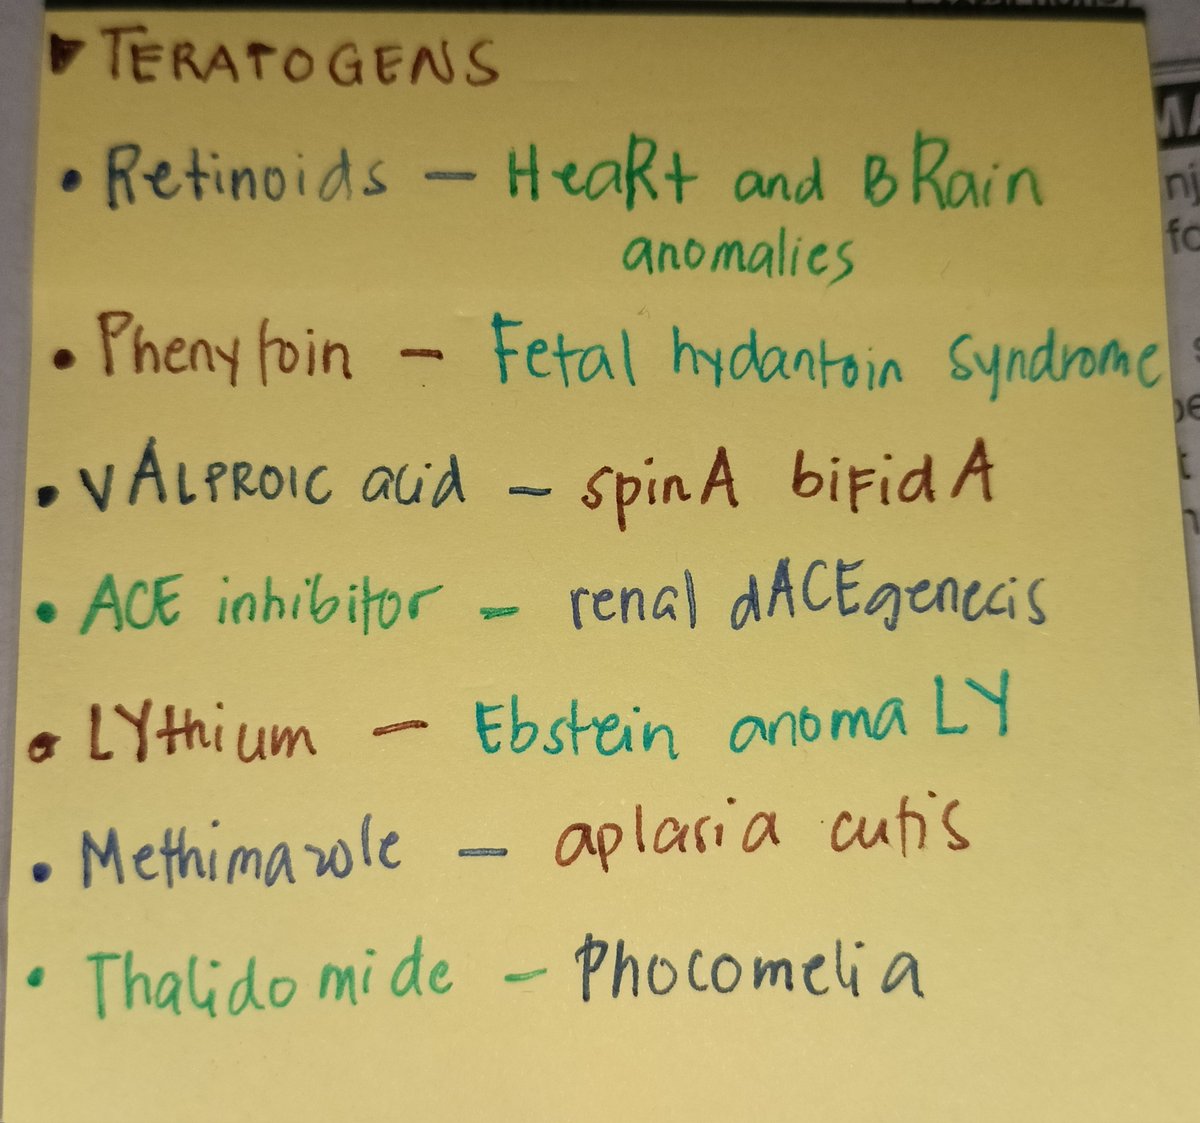 ▸ TERATOGENS
• Retinoids – HeaRt and BRain
anomalies
• Phenytoin – Fetal hydantoin syndrome
• vALPROIC acid – spinA bifidA
• ACE inhibitor – renal dACEgenecis
• LYthium – Ebstein anomaLY
• Methimazole – aplasia cutis
• Thalidomide – Phocomelia